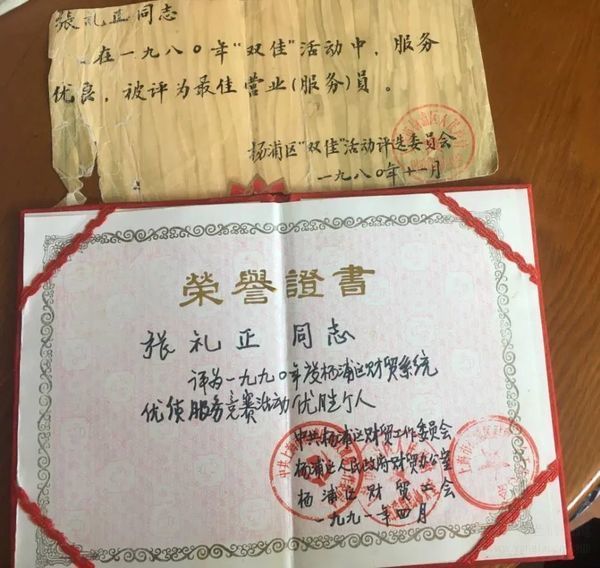 張礼正同志
在一九八〇年“双佳”活动中，服务
优良，被评为最佳营业(服务)员。
杨浦区“双佳”活动评选委员会
一九八〇年十一月
榮譽證書
张礼正 同志
评为一九九〇年度杨浦区财贸系统
优质服务竞赛活动优胜个人
中共杨浦区财贸工作委员会
杨浦区人民政府财贸办公室
杨浦区财贸工会
一九九一年四月